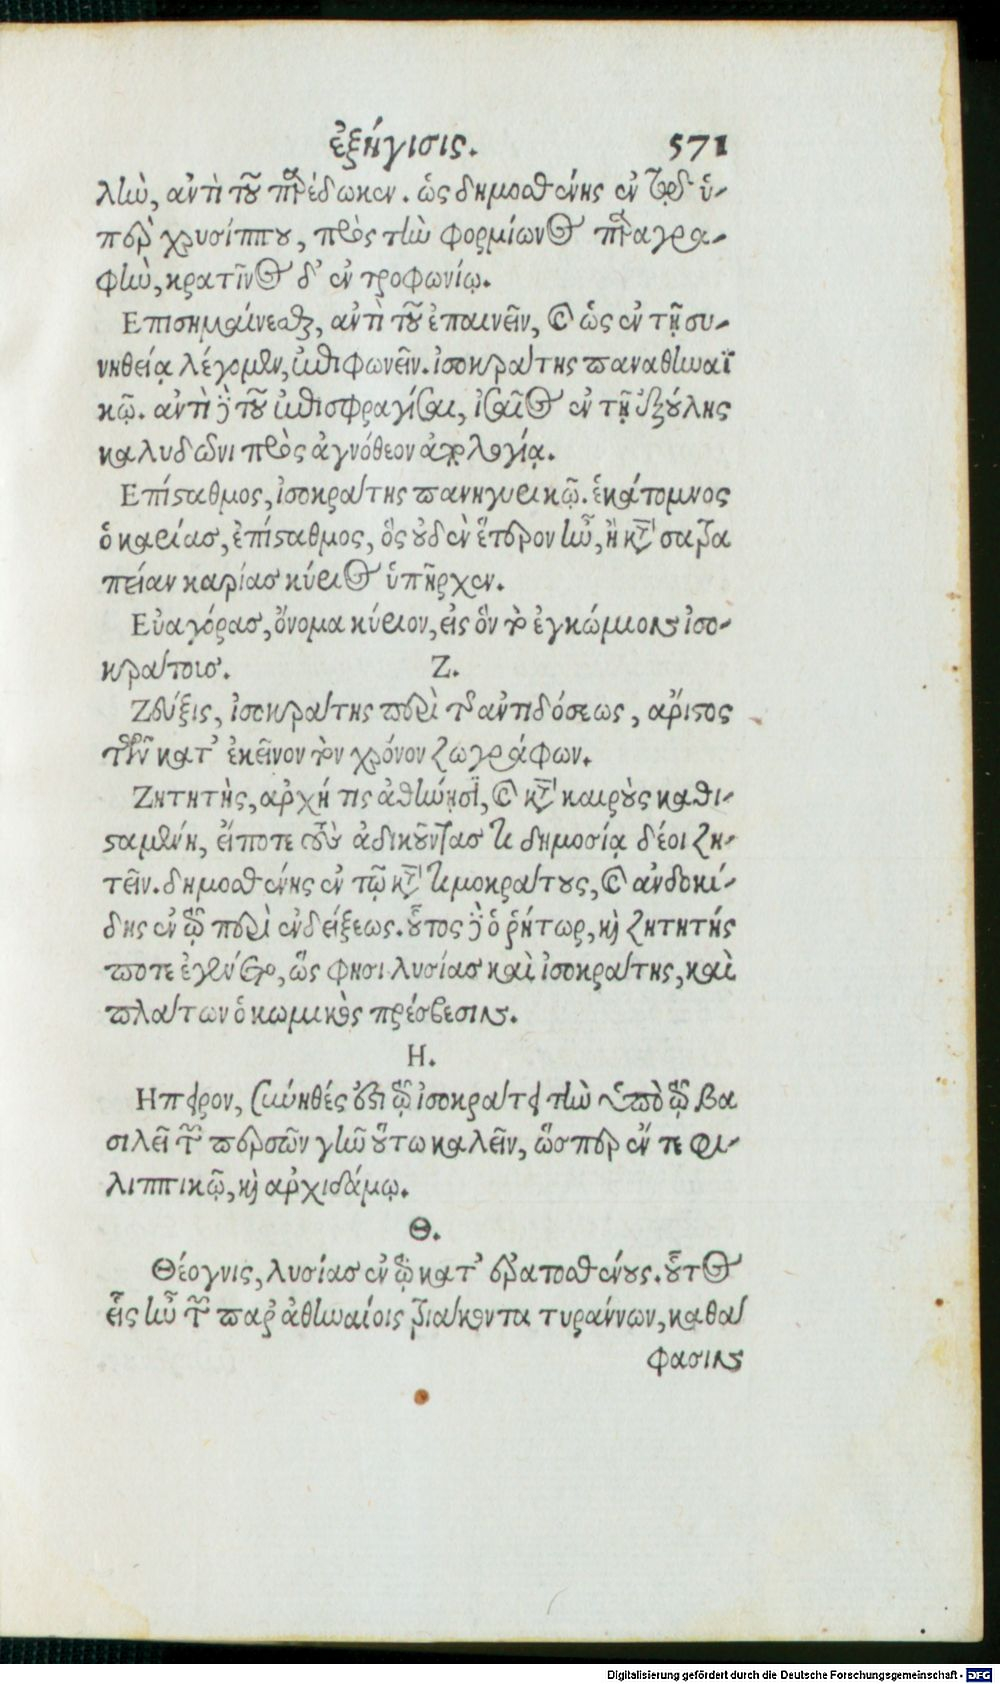 ἐξήγισις. 571
λὴν, αντὶ τοῦ παρέδωκεν. ὡς δημοσθένης ἐν ὑ-
πὲρ χρυσίππου, πρὸς τὴν φορμίωνος παραγρα-
φὴν, κρατῖνος δ' ἐν τροφωνίῳ.
Επισημαίνεσθαι, αντὶ τοῦ ἐπαινεῖν, καὶ ὡς ἐν τῇ συ-
νηθείᾳ λέγομεν, ἐπιφωνεῖν. ἰσοκράτης παναθηναϊ
κῷ. αντὶ δὲ τοῦ ἐπισφραγίσαι, ἰσαῖος ἐν τῇ
καλυδῶνι πρὸς ἁγνόθεον ἀπολογίᾳ.
Επίσταθμος, ἰσοκράτης πανηγυρικῷ. ἑκάτομνος
ὁ καρίας, ἐπίσταθμος, ὃς οὐδὲν ἕτερον ἦν, ἢ κατὰ σατρα
πείαν καρίας κύριος ὑπῆρχεν.
Εὐαγόρας, ὄνομα κύριον, εἰς ὃν τὸ ἐγκώμιον ἰσο-
κράτοις. Ζ.
Ζεύξις, ἰσοκράτης περὶ τῆς αντιδόσεως, αρίστος
τῶν κατ' ἐκεῖνον τὸν χρόνον ζωγράφων.
Ζητητὴς, αρχή τις ἀθήνησϊ, καὶ κατὰ καιροὺς καθι-
σταμένη, εἴποτε τοὺς ἀδικοῦντας τι δημοσίᾳ δέοι ζη-
τεῖν. δημοσθένης ἐν τῷ κατὰ τιμοκράτους, καὶ ανδοκί-
δης ἐν τῷ περὶ ἐνδείξεως. οὗτος δὲ ὁ ῥήτωρ, καὶ ζητητής
ποτε ἐγένετο, ὥς φησι λυσίας καὶ ἰσοκράτης, καὶ
πλάτων ὁ κωμικὸς πρέσβεσιν.
Η.
Ηπειρον, σύνηθές ἐστι τῷ ἰσοκράτει τὴν ὑπὸ τῷ βα
σιλεῖ τῶν περσῶν γῆν οὕτω καλεῖν, ὥσπερ ἔν τε φι-
λιππικῷ, καὶ αρχιδάμῳ.
Θ.
Θέογνις, λυσίας ἐν τῷ κατ' ἐρατοσθένους. οὗτος
εἷς ἦν τῶν παρ' ἀθηναίοις τριάκοντα τυράννων, καθά
φασιν
Digitalisierung gefördert durch die Deutsche Forschungsgemeinschaft - DFG